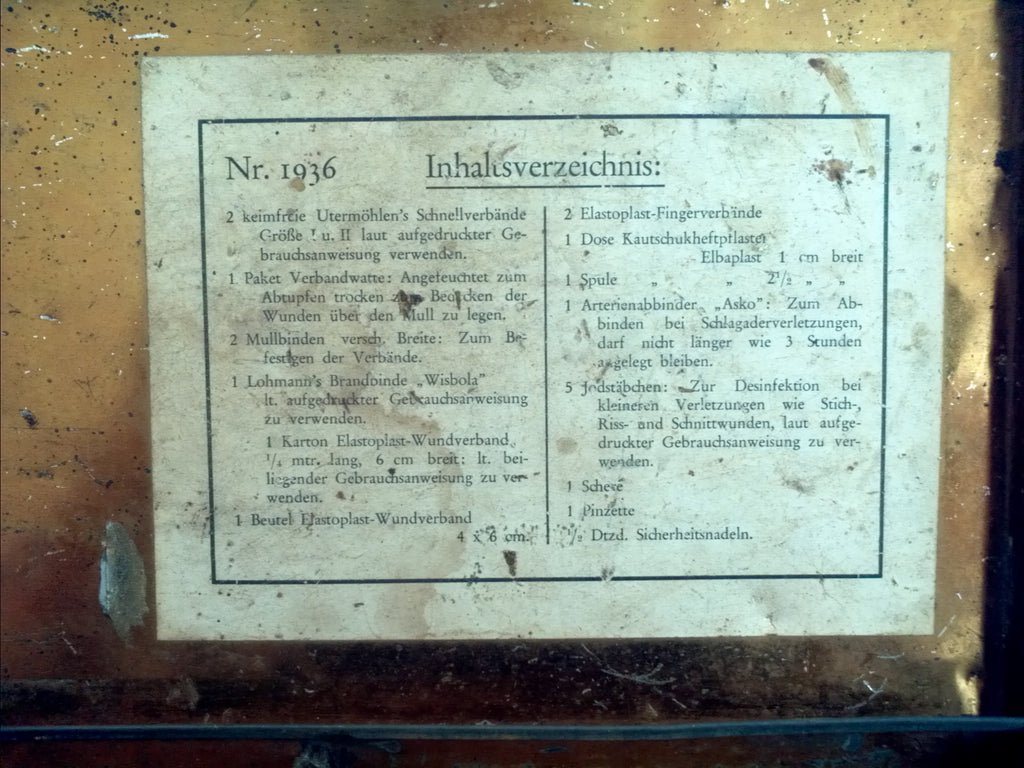 Nr. 1936 Inhaltsverzeichnis:
2 keimfreie Utermöhlen's Schnellverbände
Größe I u. II laut aufgedruckter Ge-
brauchsanweisung verwenden.
1 Paket Verbandwatte: Angefeuchtet zum
Abtupfen trocken zum Bedecken der
Wunden über den Mull zu legen.
2 Mullbinden versch. Breite: Zum Be-
festigen der Verbände.
1 Lohmann's Brandbinde „Wisbola"
lt. aufgedruckter Gebrauchsanweisung
zu verwenden.
1 Karton Elastoplast-Wundverband,
1/4 mtr. lang, 6 cm breit: lt. bei-
liegender Gebrauchsanweisung zu ver-
wenden.
1 Beutel Elastoplast-Wundverband
4 x 6 cm.
2 Elastoplast-Fingerverbände
1 Dose Kautschukheftpflaster
Elbaplast 1 cm breit
1 Spule „ „ 2 1/2 „ „
1 Arterienabbinder „Asko": Zum Ab-
binden bei Schlagaderverletzungen,
darf nicht länger wie 3 Stunden
angelegt bleiben.
5 Jodstäbchen: Zur Desinfektion bei
kleineren Verletzungen wie Stich-,
Riss- und Schnittwunden, laut aufge-
druckter Gebrauchsanweisung zu ver-
wenden.
1 Schere
1 Pinzette
1/2 Dtzd. Sicherheitsnadeln.